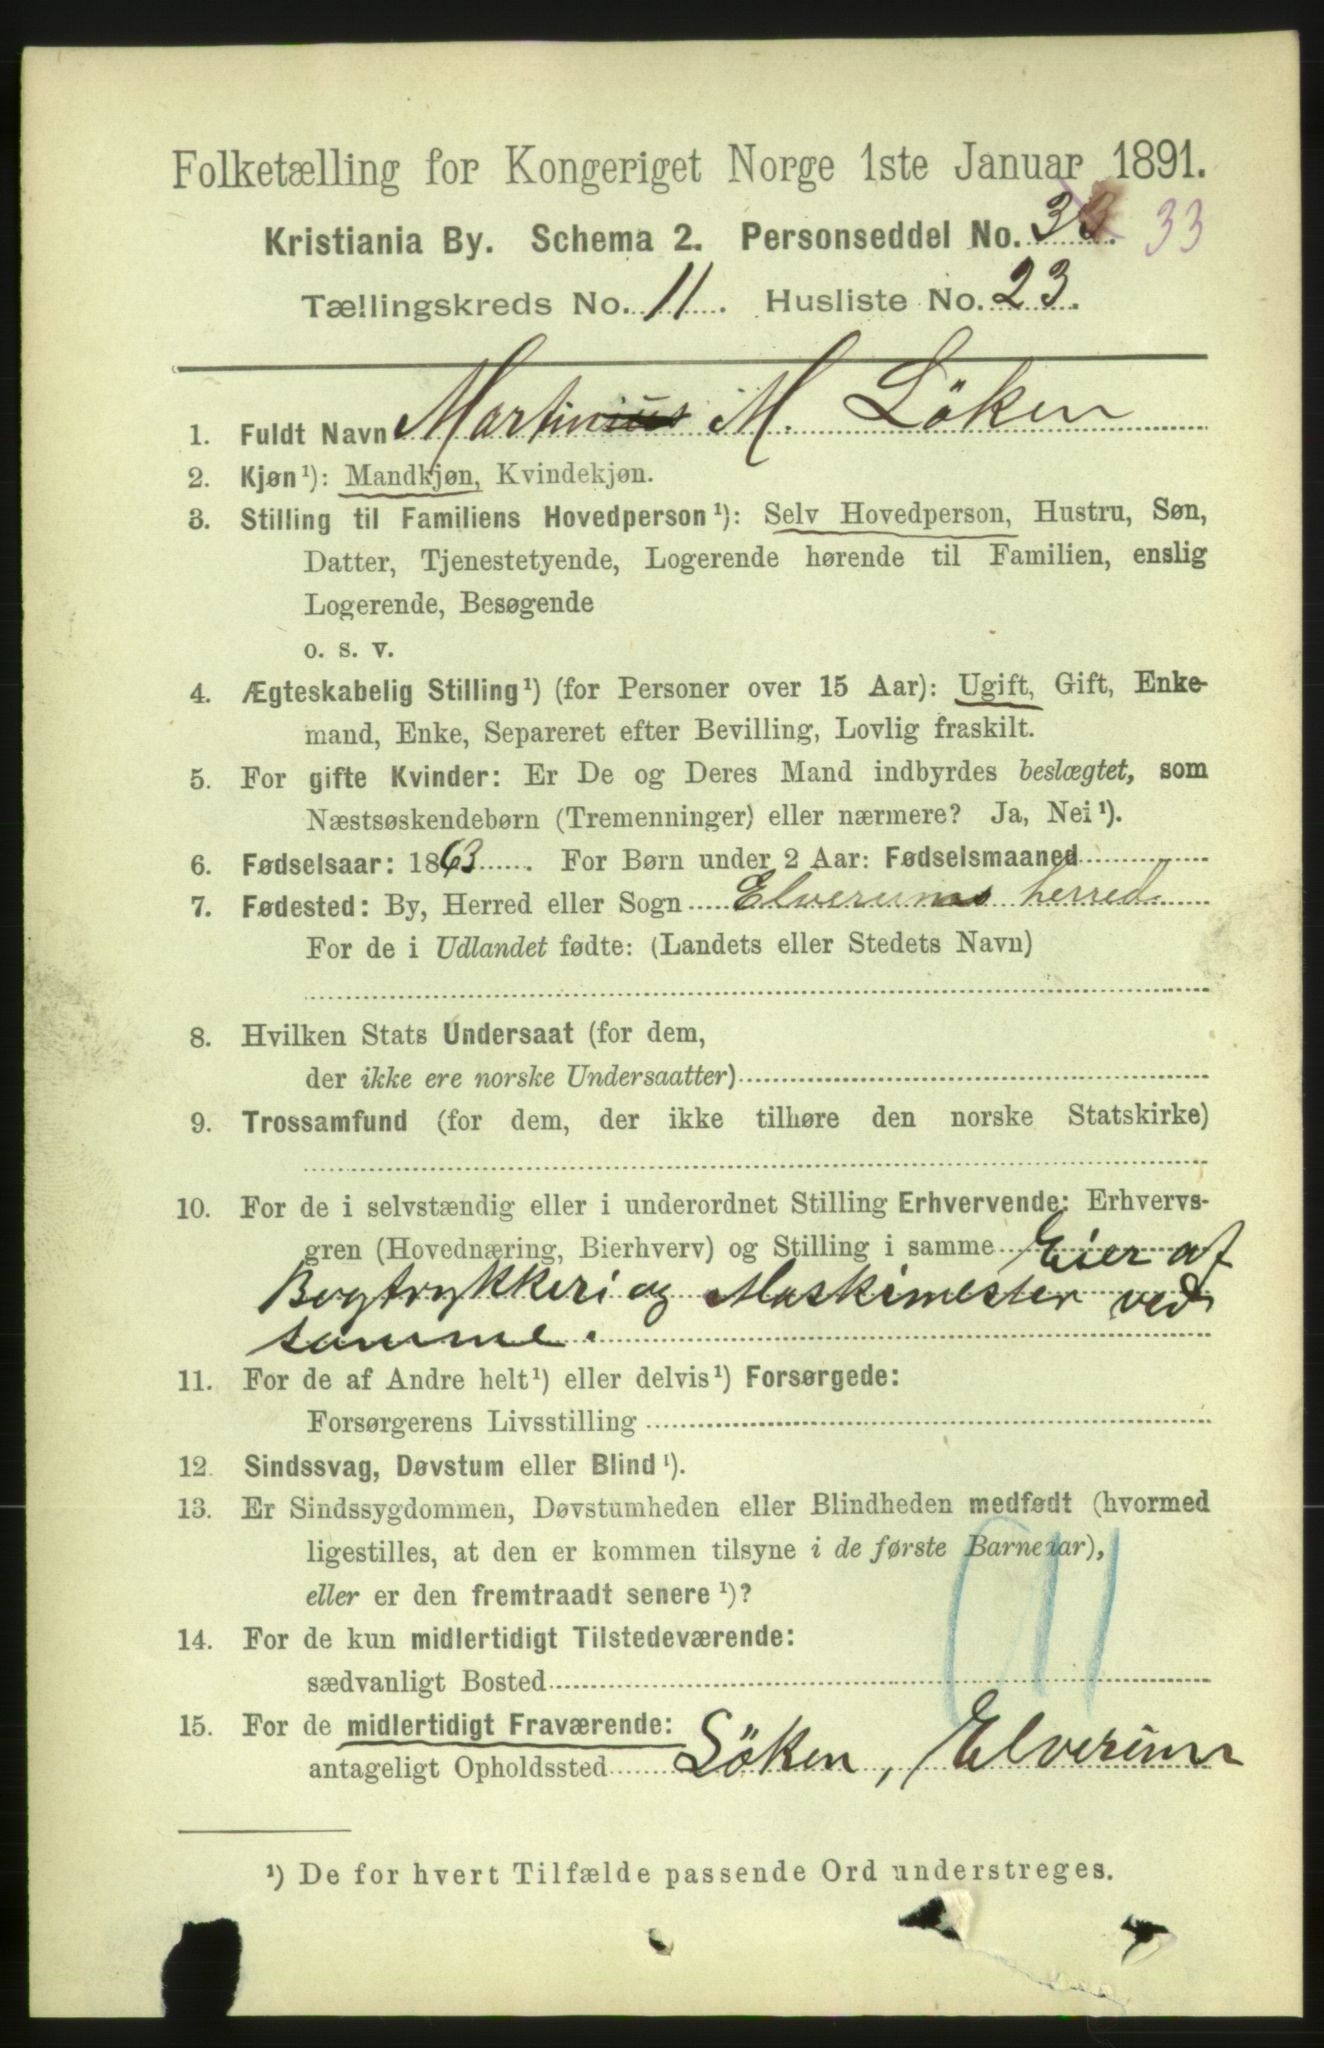 Folketælling for Kongeriget Norge 1ste Januar 1891.
Kristiania By. Schema 2. Personseddel No. 33. 33
Tællingskreds No. 11. Husliste No. 23.
1. Fuldt Navn Martinius M. Löken
2. Kjøn¹): Mandkjøn, Kvindekjøn.
3. Stilling til Familiens Hovedperson¹): Selv Hovedperson, Hustru, Søn,
Datter, Tjenestetyende, Logerende hørende til Familien, enslig
Logerende, Besøgende
o. s. v.
4. Ægteskabelig Stilling¹) (for Personer over 15 Aar): Ugift, Gift, Enke-
mand, Enke, Separeret efter Bevilling, Lovlig fraskilt.
5. For gifte Kvinder: Er De og Deres Mand indbyrdes beslægtet, som
Næstsøskendebørn (Tremenninger) eller nærmere? Ja, Nei¹).
6. Fødselsaar: 1863. For Børn under 2 Aar: Fødselsmaaned
7. Fødested: By, Herred eller Sogn Elverums herred.
For de i Udlandet fødte: (Landets eller Stedets Navn)
8. Hvilken Stats Undersaat (for dem,
der ikke ere norske Undersaatter)
9. Trossamfund (for dem, der ikke tilhøre den norske Statskirke)
10. For de i selvstændig eller i underordnet Stilling Erhvervende: Erhvervs-
gren (Hovednæring, Bierhverv) og Stilling i samme Eier af
Bogtrykkeri og Maskimester ved
samme.
11. For de af Andre helt¹) eller delvis¹) Forsørgede:
Forsørgerens Livsstilling
12. Sindssvag, Døvstum eller Blind¹).
13. Er Sindssygdommen, Døvstumheden eller Blindheden medfødt (hvormed
ligestilles, at den er kommen tilsyne i de første Barneaar),
eller er den fremtraadt senere¹)?
14. For de kun midlertidigt Tilstedeværende:
sædvanligt Bosted
15. For de midlertidigt Fraværende:
antageligt Opholdssted Löken, Elverum
¹) De for hvert Tilfælde passende Ord understreges.